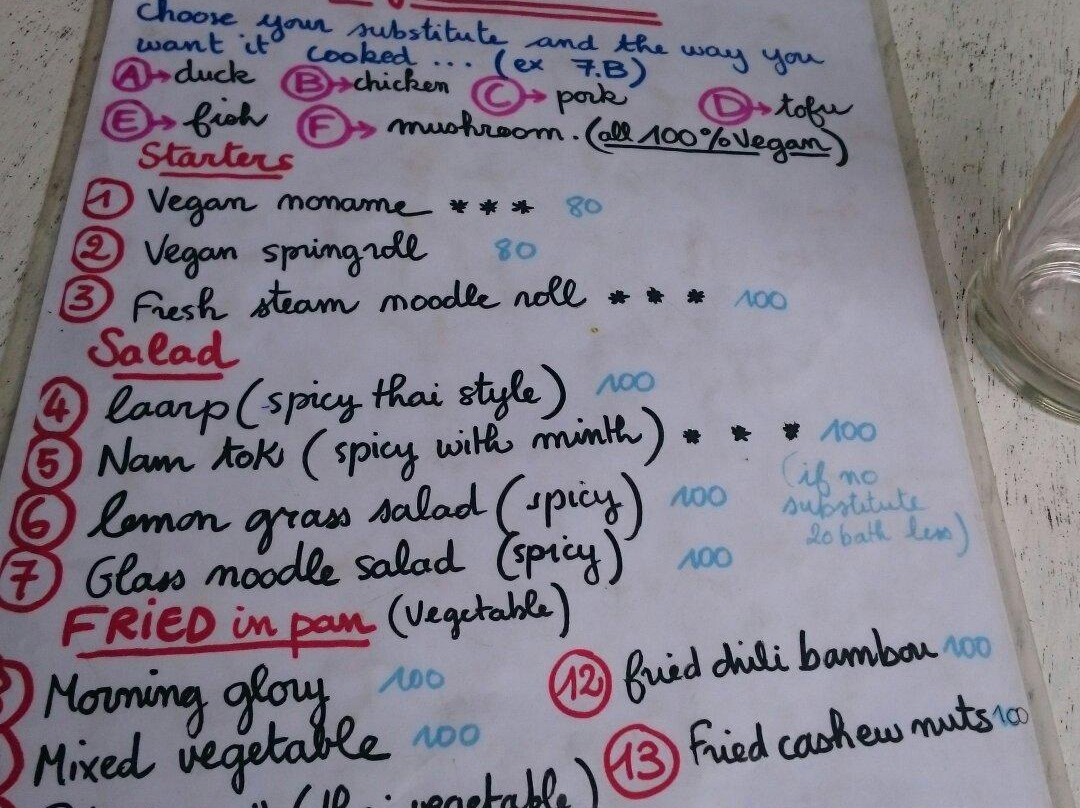 choose your substitute and the way you
want it cooked ... (ex 7.B)
A → duck B → chicken C → pork D → tofu
E → fish F → mushroom. (all 100% Vegan)
Starters
1 Vegan noname * * * 80
2 Vegan springroll 80
3 Fresh steam noodle roll * * * 100
Salad
4 laarp (spicy thai style) 100
5 Nam tok (spicy with minth) * * * 100
(if no
substitute
20 bath less)
6 lemon grass salad (spicy) 100
7 Glass noodle salad (spicy) 100
FRiED in pan (vegetable)
Morning glory 100
12 fried chili bambou 100
Mixed vegetable 100
13 Fried cashew nuts 100
vegetable)